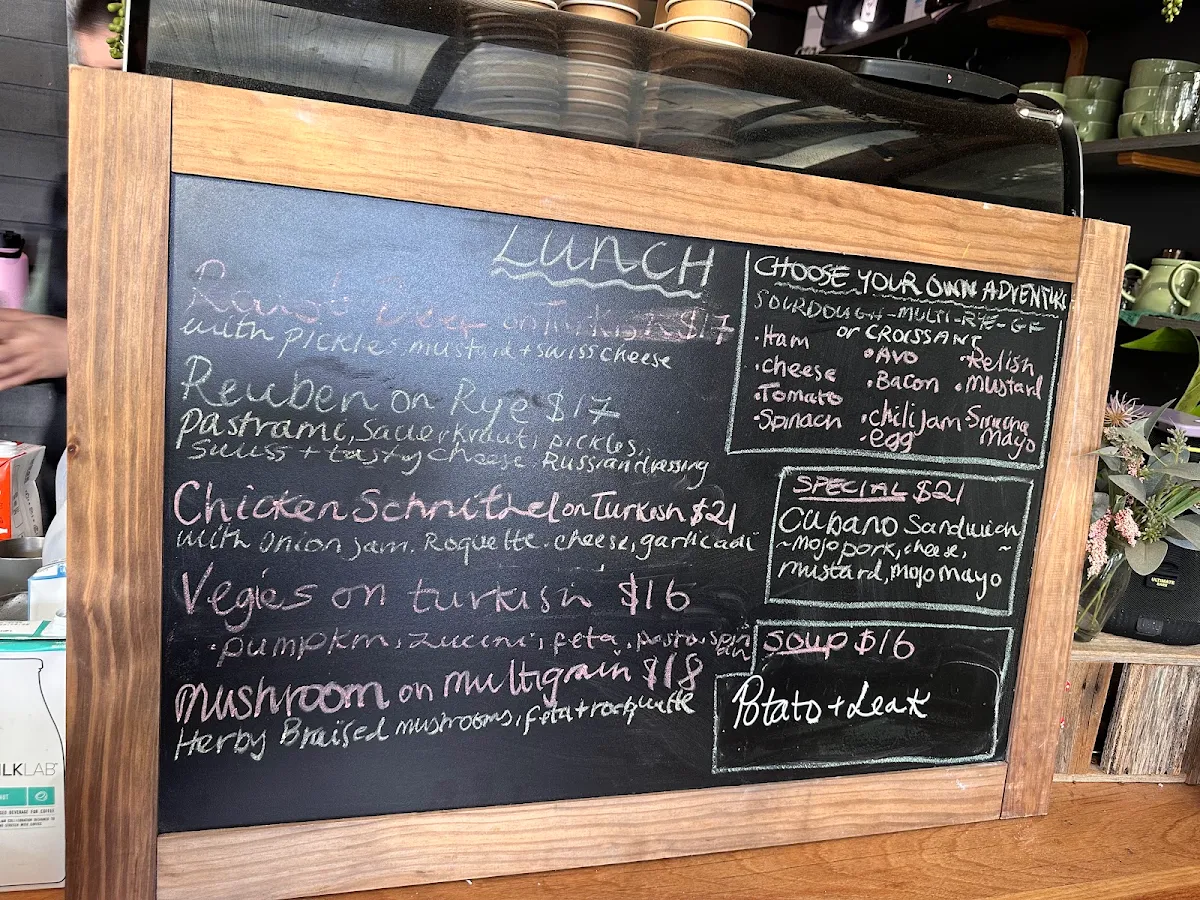 LUNCH
on Turkish $17
with pickles, mustard + swiss cheese
Reuben on Rye $17
Pastrami, Sauerkraut, pickles,
Swiss + tasty cheese Russian dressing
Chicken Schnithel on Turkish $21
with onion jam. Roquette. cheese, garlic aoli
Vegies on turkish $16
pumpkin, zucini, feta, pesto, spin
ach
mushroom on multigrain $18
Herby Braised mushrooms, feta + roquette
CHOOSE YOUR OWN ADVENTURE
SOURDOUGH - MULTI - RYE - GF
or CROISSANT
•Ham •Avo •Relish
•cheese •Bacon •Mustard
•Tomato •chili jam •Sriracha
•Spinach •egg mayo
SPECIAL $21
Cubano Sandwich
~mojo pork, cheese, ~
mustard, mojo mayo
SOUP $16
Potato + Leak
ILKLAB
ULTIMATE